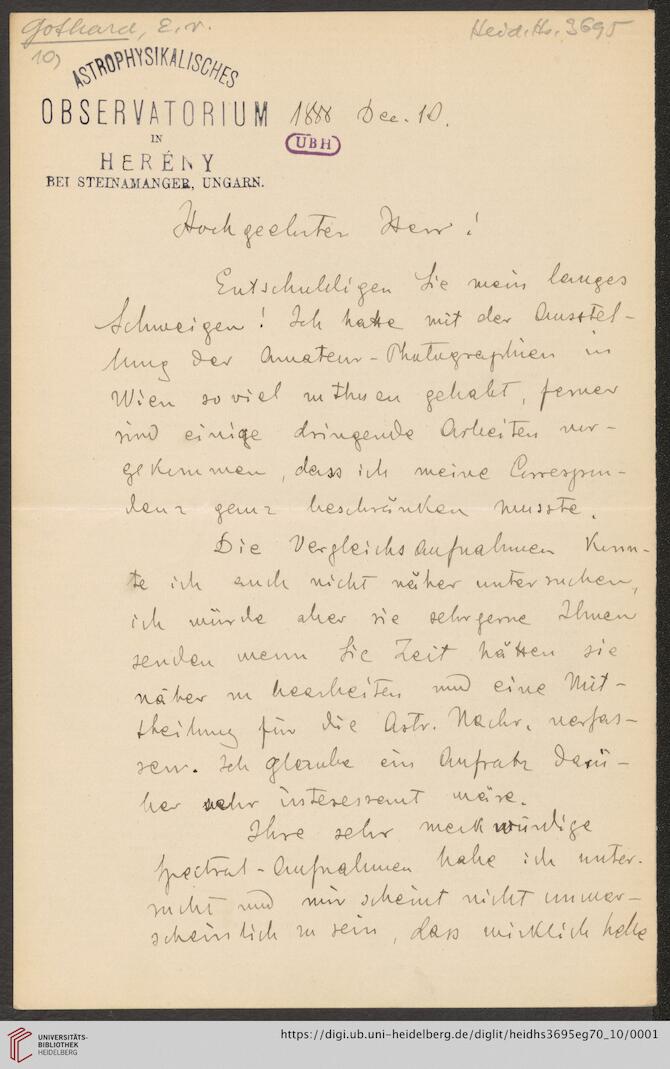 Gothard, E. v.
Heid. Hs. 3695
10)
ASTROPHYSIKALISCHES
OBSERVATORIUM
IN
HERÉNY
BEI STEINAMANGER, UNGARN.
1888 Dec. 10.
UBH
Hochgeehrter Herr!
Entschuldigen Sie mein langes
Schweigen! Ich hatte mit der Ausstel-
lung der Amateur-Photographien in
Wien so viel zu thuen gehabt, ferner
sind einige dringende Arbeiten vor-
gekommen, dass ich meine Correspon-
denz ganz beschränken musste.
Die Vergleichsaufnahmen konn-
te ich auch nicht näher untersuchen,
ich würde aber sie sehr gerne Ihnen
senden wenn Sie Zeit hätten sie
näher zu bearbeiten und eine Mit-
theilung für die Astr. Nachr. verfas-
sen. Ich glaube ein Aufsatz darü-
ber sehr interessant wäre.
Ihre sehr merkwürdige
Spectral-Aufnahmen habe ich unter-
sucht und mir scheint nicht unwar-
scheinlich zu sein, dass wirklich helle
UNIVERSITÄTS-
BIBLIOTHEK
HEIDELBERG
https://digi.ub.uni-heidelberg.de/diglit/heidhs3695eg70_10/0001